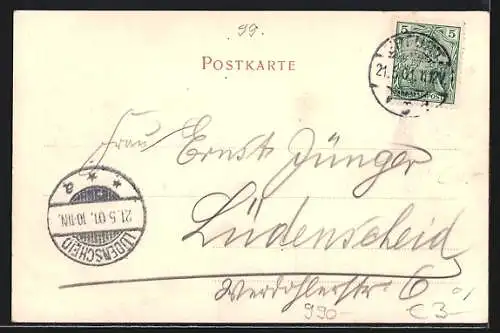 99.
POSTKARTE
5 5
21.5.01.
Frau
Ernst Jünger
Lüdenscheid
Werdohlerstr. 6
LÜDENSCHEID
21.5.01. 10-11N.
* * a
990-
C3-